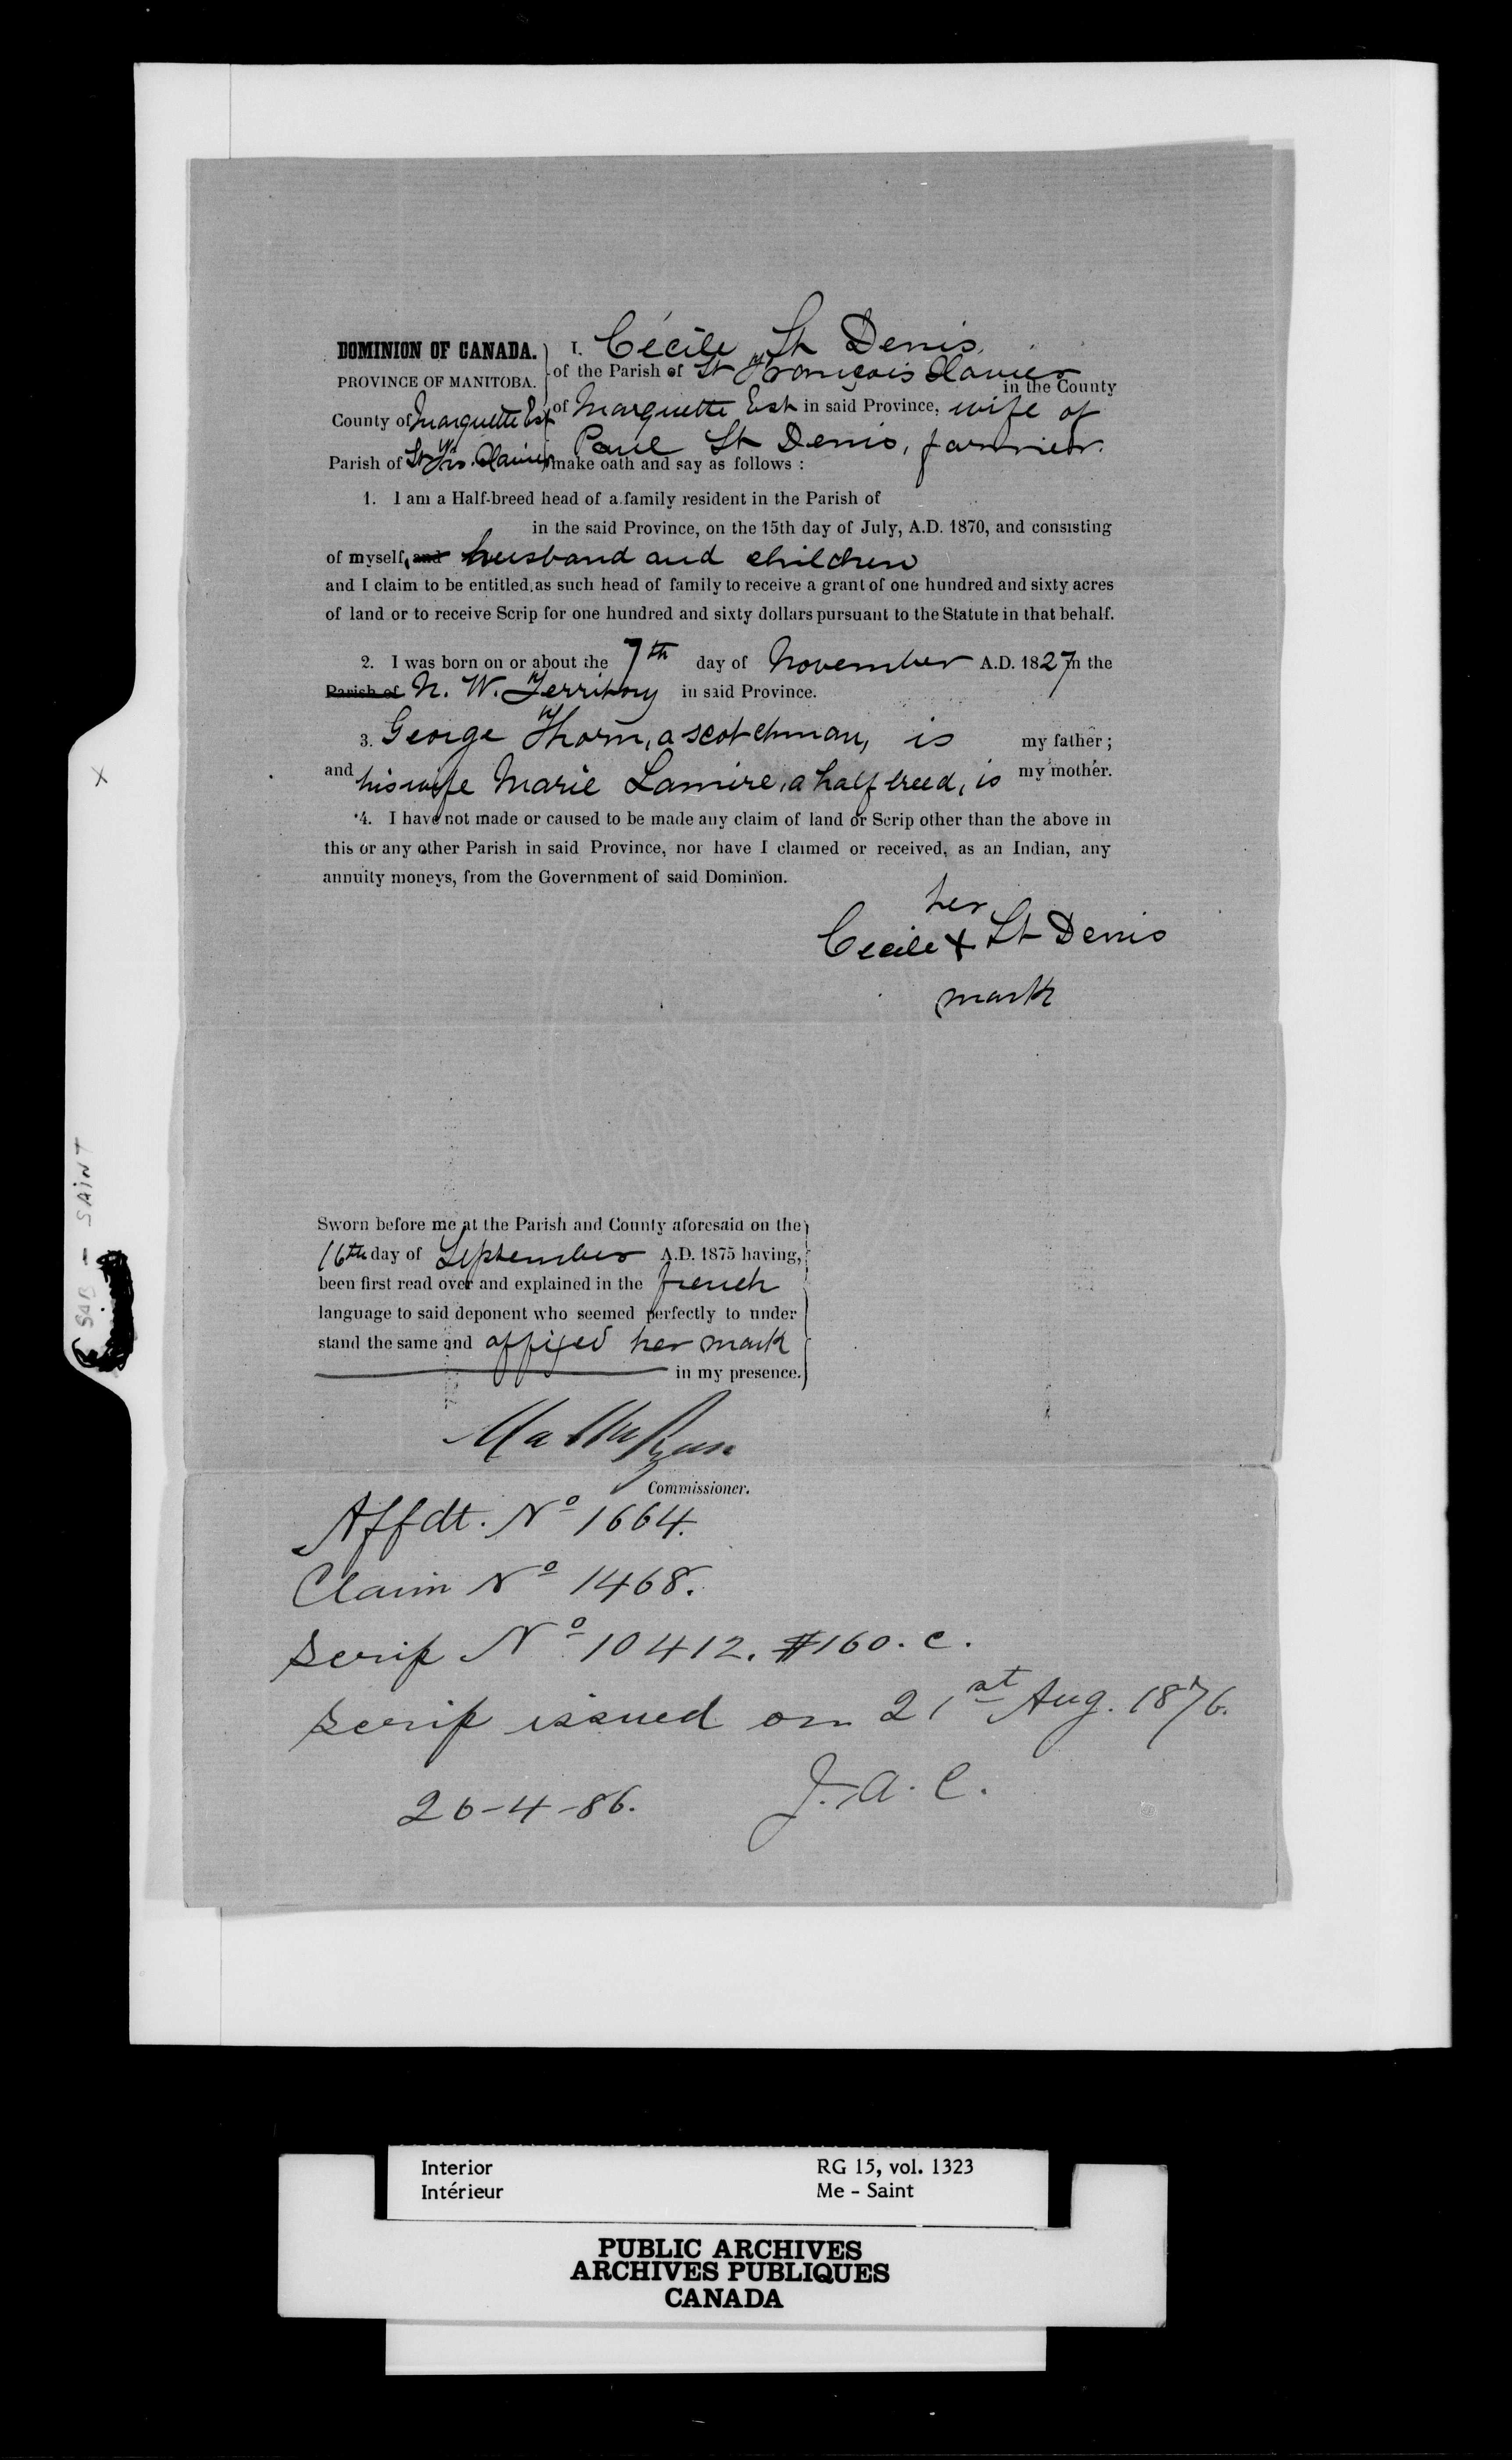 DOMINION OF CANADA.
PROVINCE OF MANITOBA.
County of Marquette Est
Parish of St Frs. Xavier
I. Cécile St Denis,
of the Parish of St François Xavier in the County
of Marquette Est in said Province, wife of
Paul St Denis, farmer.
make oath and say as follows :
1. I am a Half-breed head of a family resident in the Parish of
in the said Province, on the 15th day of July, A.D. 1870, and consisting
of myself, and husband and children
and I claim to be entitled as such head of family to receive a grant of one hundred and sixty acres
of land or to receive Scrip for one hundred and sixty dollars pursuant to the Statute in that behalf.
2. I was born on or about the 7th day of November A.D. 1827 in the
Parish of N. W. Territory in said Province.
3. George Thorn, a scotchman, is my father ;
and his wife Marie Lamire, a half breed, is my mother.
4. I have not made or caused to be made any claim of land or Scrip other than the above in
this or any other Parish in said Province, nor have I claimed or received, as an Indian, any
annuity moneys, from the Government of said Dominion.
her
Cecile X St Denis
mark
Sworn before me at the Parish and County aforesaid on the
16th day of September A.D. 1875 having,
been first read over and explained in the french
language to said deponent who seemed perfectly to under
stand the same and affixed her mark
in my presence.
Commissioner.
Affdt. No 1664.
Claim No 1468.
Scrip No 10412. $160. c.
Scrip issued on 21st Aug. 1876.
20-4-86. J. A. C.
X
SAB - SAINT
Interior RG 15, vol. 1323
Intérieur Me - Saint
PUBLIC ARCHIVES
ARCHIVES PUBLIQUES
CANADA